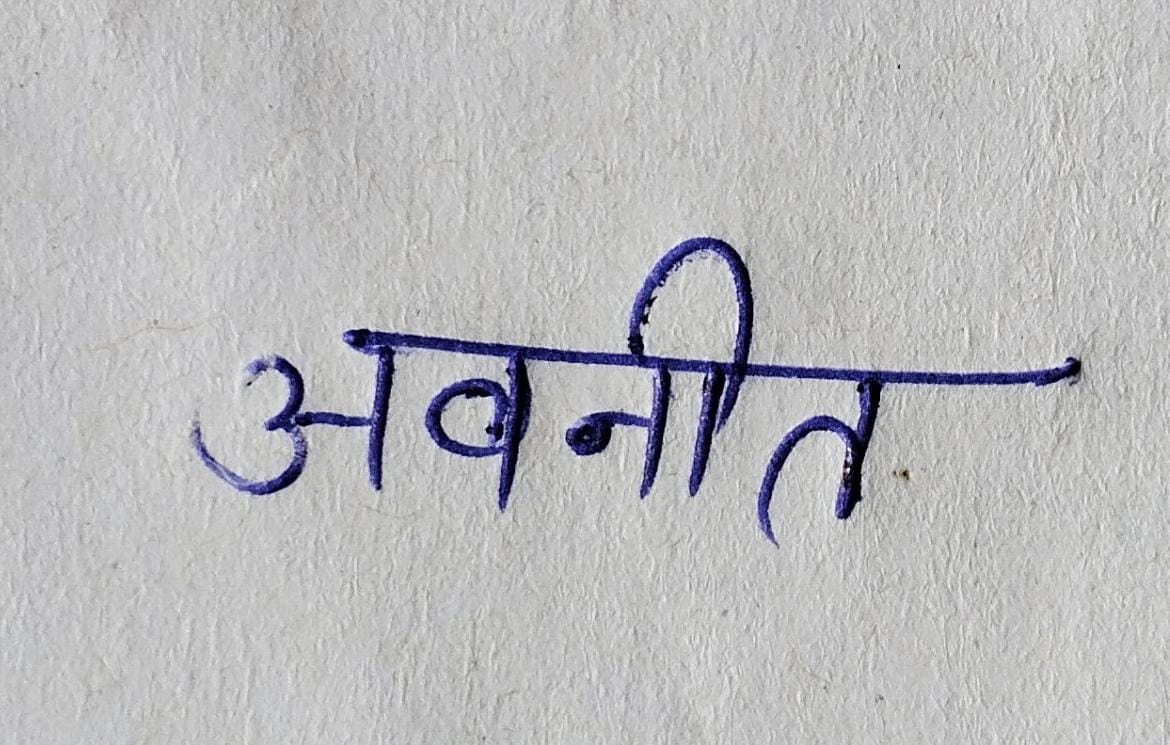 अवनीत